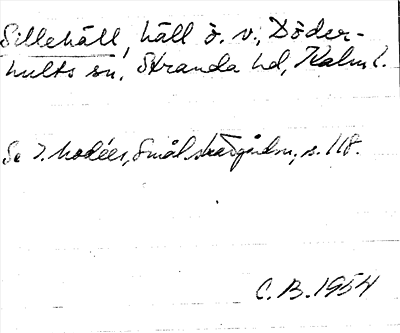 Sillehäll, häll ö. v., Döder-
hults sn, Stranda hd, Kalm. l.
Se I. Modéer, Smål. skärgårdsn., s. 118.
C. B. 1954